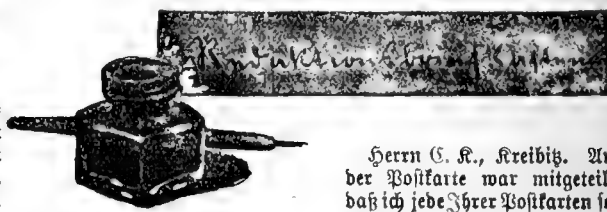 Redaktionsbriefkasten
Herrn C. K., Kreibitz.
der Postkarte war mitgeteil
daß ich jede Ihrer Postkarten